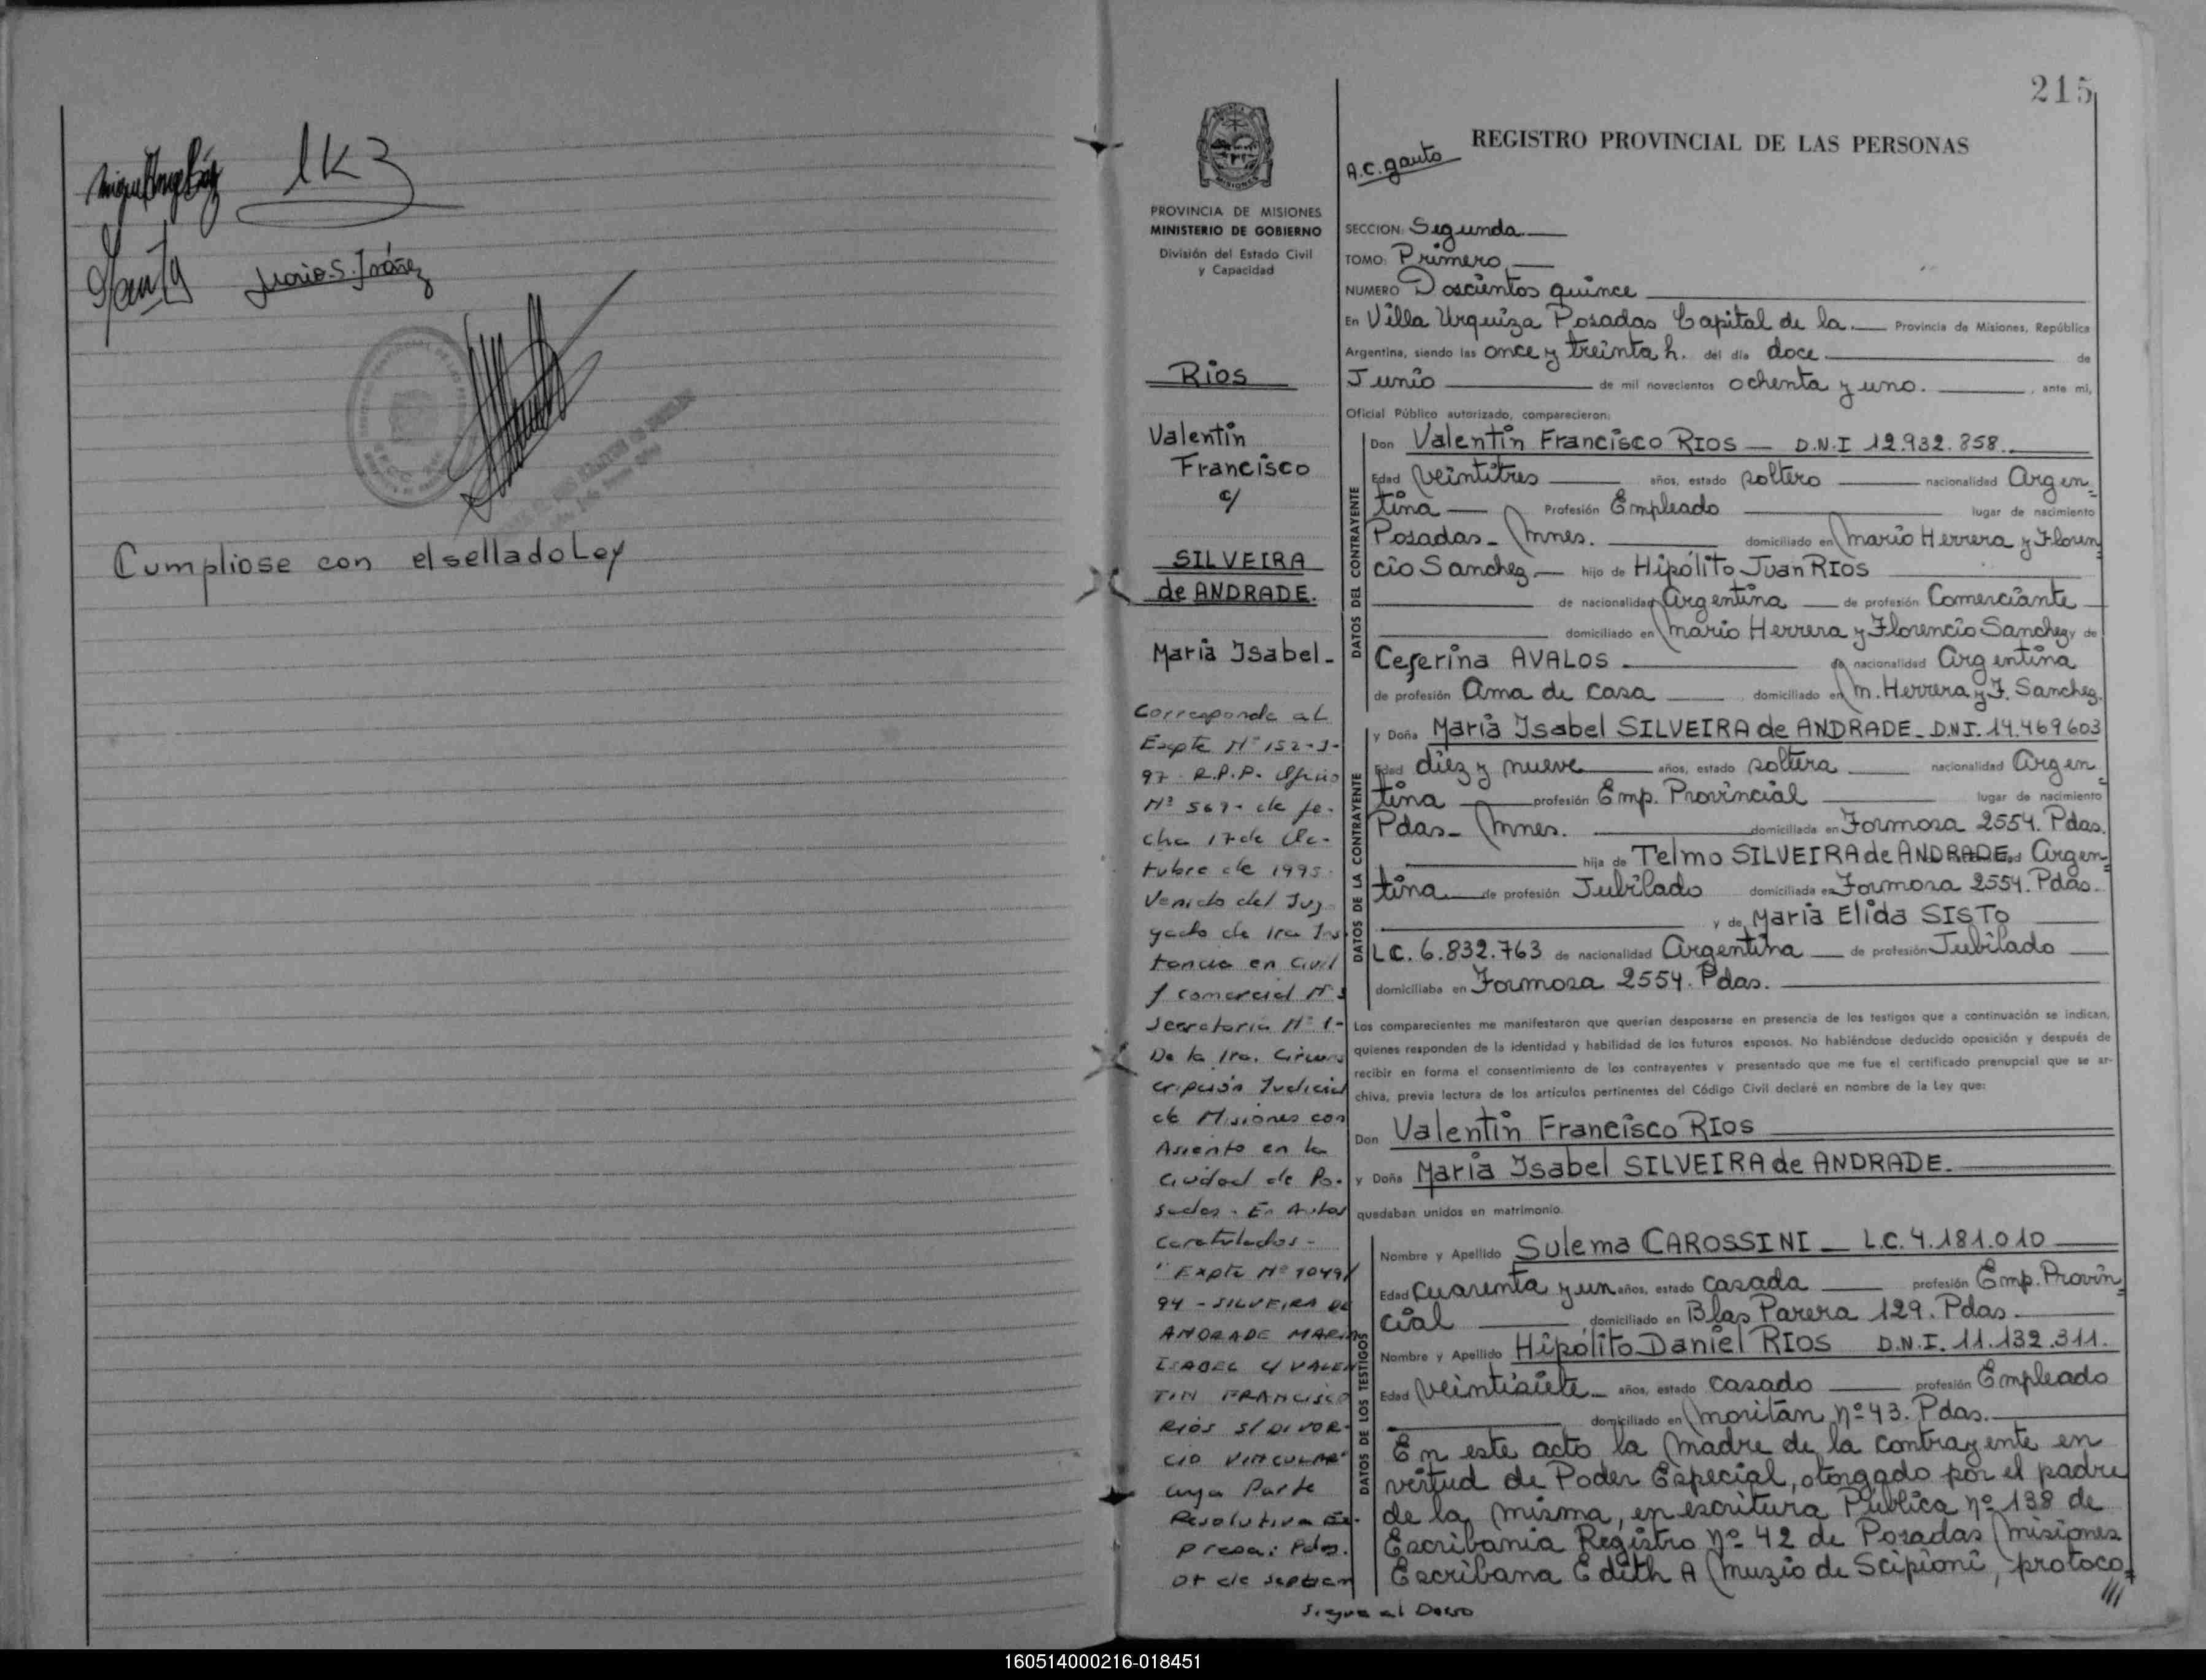 Cumpliose con el sellado Ley
215
REGISTRO PROVINCIAL DE LAS PERSONAS
A.C. Gauto
MISIONES
PROVINCIA DE MISIONES
MINISTERIO DE GOBIERNO
División del Estado Civil
y Capacidad
Rios
Valentin
Francisco
c/
SILVEIRA
de ANDRADE.
Maria Isabel-
Corresponde al
Expte Nº 152-J-
97- R.P.P. Oficio
Nº 569- de fe-
cha 17 de Oc-
tubre de 1995.
Venido del Juz
gado de 1ra Ins
tancia en Civil
y comercial Nº 3
Secretaria Nº 1-
De la 1ra. Circuns
cripción Judicial
de Misiones con
Asiento en la
Ciudad de Po-
sadas. En Autos
Caratulados-
" Expte Nº 1049/
94 - SILVEIRA DE
ANDRADE MARIA
ISABEL C/ VALEN
TIN FRANCISCO
RIOS S/ DIVOR-
CIO VINCULAR"
cuya Parte
Resolutiva Ex-
presa: Pdas.
07 de septiem
Sigue al Dorso
SECCION: Segunda
TOMO: Primero
NUMERO Doscientos quince
En Villa Urquiza Posadas Capital de la Provincia de Misiones, República
Argentina, siendo las once y treinta h. del día doce de
Junio de mil novecientos ochenta y uno. , ante mi,
Oficial Público autorizado, comparecieron:
DATOS DEL CONTRAYENTE
Don Valentin Francisco RIOS — D.N.I 12.932.858.
Edad veintitres años, estado soltero nacionalidad Argen=
tina Profesión Empleado lugar de nacimiento
Posadas- Mnes. domiciliado en Mario Herrera y Floren
cio Sanchez hijo de Hipólito Juan RIOS
de nacionalidad Argentina de profesión Comerciante
domiciliado en Mario Herrera y Florencio Sanchez y de
Ceferina AVALOS de nacionalidad Argentina
de profesión Ama de casa domiciliado en M. Herrera y F. Sanchez.
DATOS DE LA CONTRAYENTE
y Doña Maria Isabel SILVEIRA de ANDRADE- D.N.I. 14.469603
Edad diez y nueve años, estado soltera nacionalidad Argen=
tina profesión Emp. Provincial lugar de nacimiento
Pdas- Mnes. domiciliada en Formosa 2554. Pdas.
hija de Telmo SILVEIRA de ANDRADE, Argen=
tina de profesión Jubilado domiciliada en Formosa 2554. Pdas.
y de Maria Elida SISTO
LC. 6.832.763 de nacionalidad Argentina de profesión Jubilado
domiciliaba en Formosa 2554. Pdas.
Los comparecientes me manifestaron que querían desposarse en presencia de los testigos que a continuación se indican,
quienes responden de la identidad y habilidad de los futuros esposos. No habiéndose deducido oposición y después de
recibir en forma el consentimiento de los contrayentes y presentado que me fue el certificado prenupcial que se ar-
chiva, previa lectura de los artículos pertinentes del Código Civil declaré en nombre de la Ley que:
Don Valentin Francisco RIOS
y Doña Maria Isabel SILVEIRA de ANDRADE.
quedaban unidos en matrimonio.
DATOS DE LOS TESTIGOS
Nombre y Apellido Sulema CAROSSINI — L.C. 4.181.010
Edad cuarenta y un años, estado casada profesión Emp. Provin=
cial domiciliado en Blas Parera 129. Pdas.
Nombre y Apellido Hipólito Daniel RIOS D.N.I. 11.132.311.
Edad veintisiete años, estado casado profesión Empleado
domiciliado en Moritán nº 43. Pdas.
En este acto la madre de la contrayente en
vertud de Poder Especial, otorgado por el padre
de la misma, en escritura Publica nº 138 de
Escribania Registro nº 42 de Posadas Misiones
Escribana Edith A Muzio de Scipioni, protoco=
///
160514000216-018451